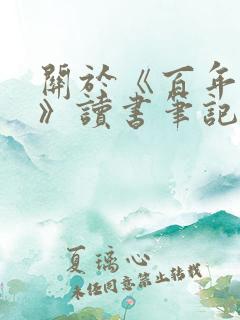 關於《百年
》讀書筆記
夏璃心
未任同意禁止转载